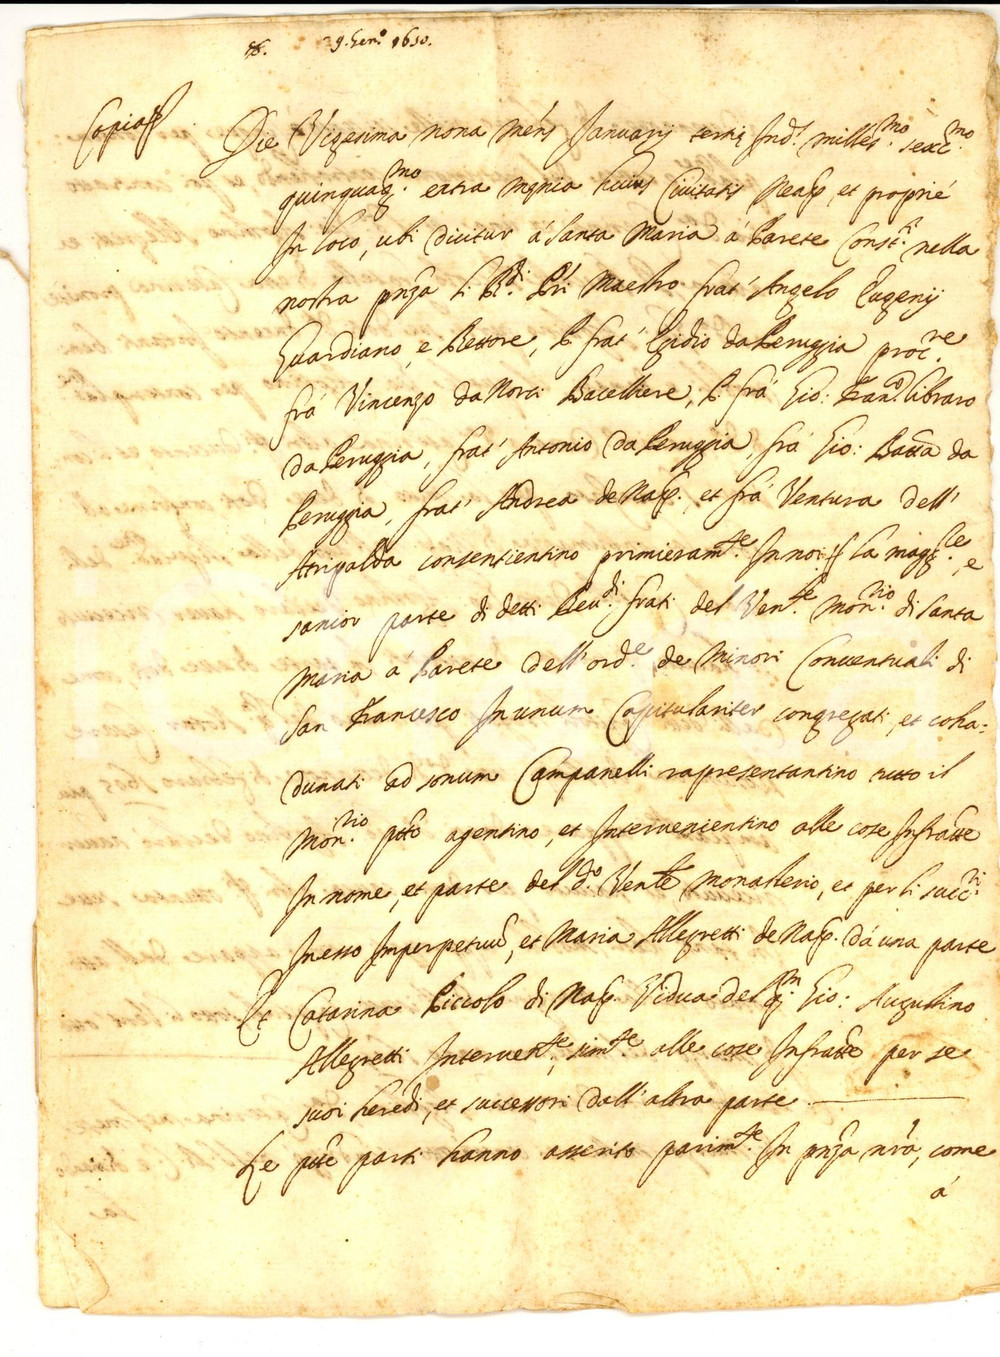 29. Gen.º 1650.
Copia
Die Vigesima nona mens Januarij tertię Ind.ˢ milles.ᵐᵒ sexc.ᵐᵒ
quinquag.ᵐᵒ extra męnia huius Civitatis Neap. et propriè
In loco, ubi dicitur à Santa Maria à Parete Const.ᵗⁱ nella
nostra pñza li R.ᵈⁱ P̃ri Maestro frat' Angelo Eugenij
Guardiano, e Rettore, P. frat' Egidio da Peruggia proc.ʳᵉ
frà Vincenzo da Norci Bacelliere, P. frà Gio: Fran.ᶜᵒ libraro
da Peruggia, frat' Antonio da Peruggia, frà Gio: Batta da
Peruggia, frat' Andrea de Nap. et frà Ventura dell'
Atripalda consentientino primieram.ᵗᵉ In noi la magg.ʳᵉ, e
sanior parte di detti Reu.ᵈⁱ frati del Ven.ˡᵉ Mon.ʳⁱᵒ di Santa
Maria à Parete dell'ord.ᵉ de Minori Conuentuali di
San Francesco In unum Capitulariter congregati, et coha=
dunati ad sonum Campanelli rapresentantino tutto il
Mon.ʳⁱᵒ ptt̃o agentino, et Interuenientino alle cose Infratt̃e
In nome, et parte del d.º Ven̄le monasterio, et per li succ.ʳⁱ
In esso Imperpetuũ, et Maria Allegretti de Nap. dà una parte
Et Catarina Piccolo di Nap. Vidua del q.ᵐ Gio: Augustino
Allegretti Interuen.ᵗᵉ, sim.ᵗᵉ alle cose Infratt̃e per se
suoi heredi, et successori dall'altra parte
Le ptt̃e parti hanno asserito parim.ᵗᵉ In pñza nr̃a, come
à